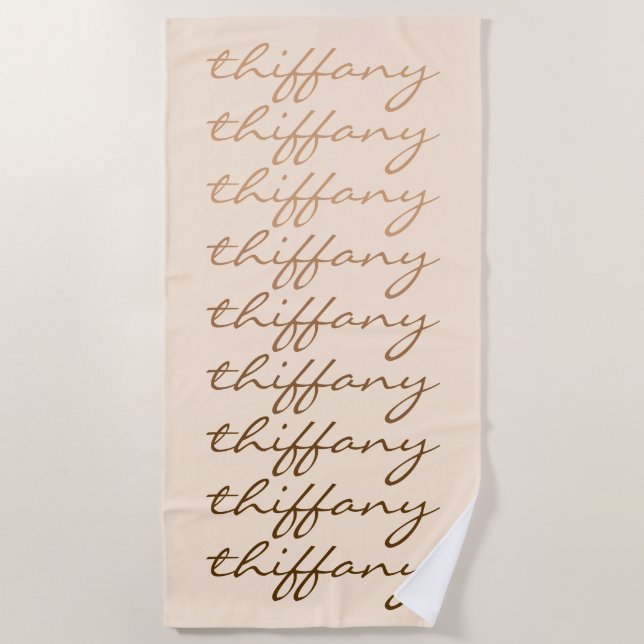 thiffany
thiffany
thiffany
thiffany
thiffany
thiffany
thiffany
thiffany
thiffany